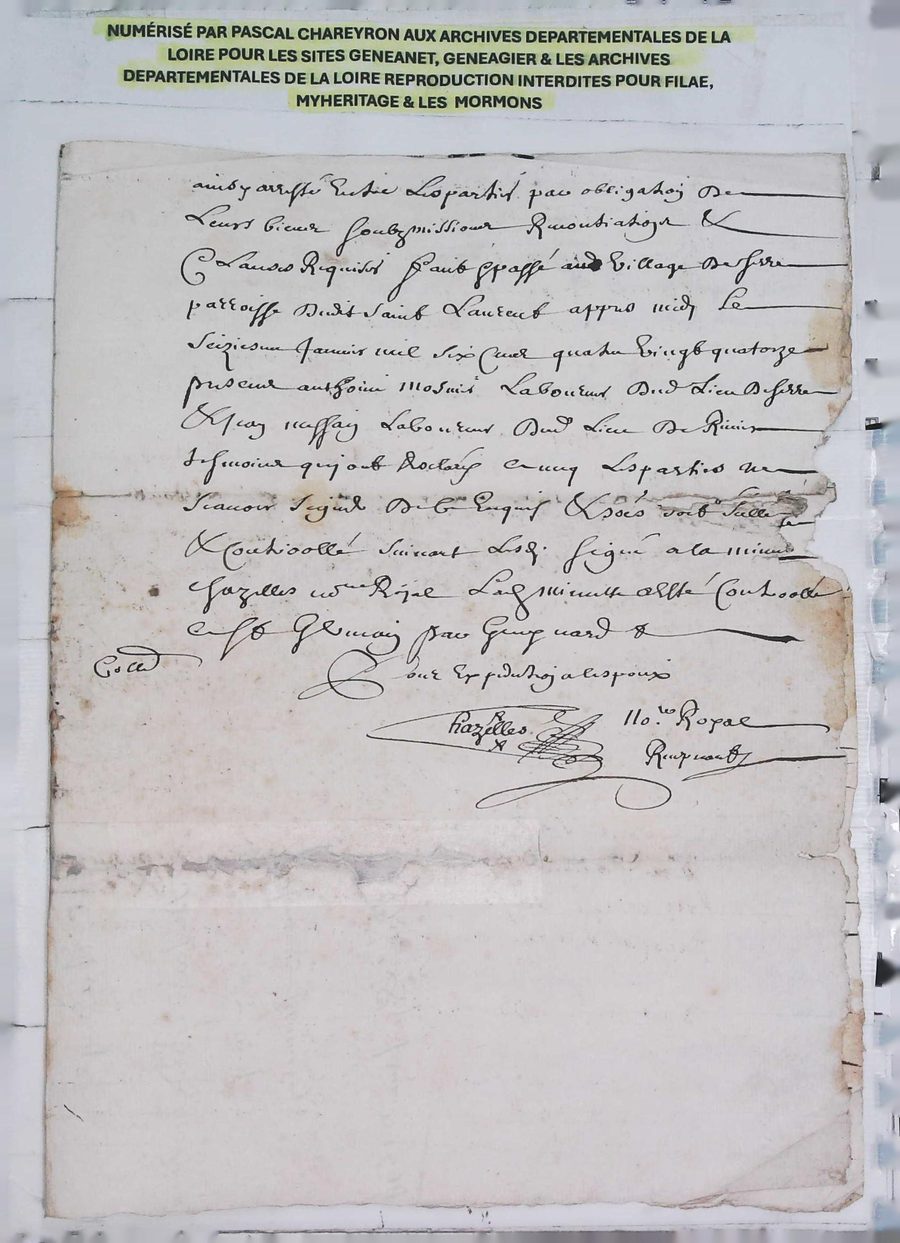 NUMÉRISÉ PAR PASCAL CHAREYRON AUX ARCHIVES DEPARTEMENTALES DE LA
LOIRE POUR LES SITES GENEANET, GENEAGIER & LES ARCHIVES
DEPARTEMENTALES DE LA LOIRE REPRODUCTION INTERDITES POUR FILAE,
MYHERITAGE & LES MORMONS
ainsy arresté Entre Lesparties par obligation De
Leurs biens soubzmissions Renontiations &
Clauses Requises faict & passé aud Village De serre
parroisse Dudit Saint Laurent appres midy Le
seiziesme Janvier mil six Cens quatre Vingt quatorze
presens anthoine Laboureur Dud Lieu De serre
& Jean Laboureur Dud Lieu De
tesmoins qui ont declaré Lesparties ne
scavoir signer De ce Enquis & soit
& Controollé suivant Lesd. signé a la minute
chazelles Royal Lad minutte a Esté Controollé
a St Germain par &
Colld
pour Expedition a lespoux
Chazelles No.re Royal